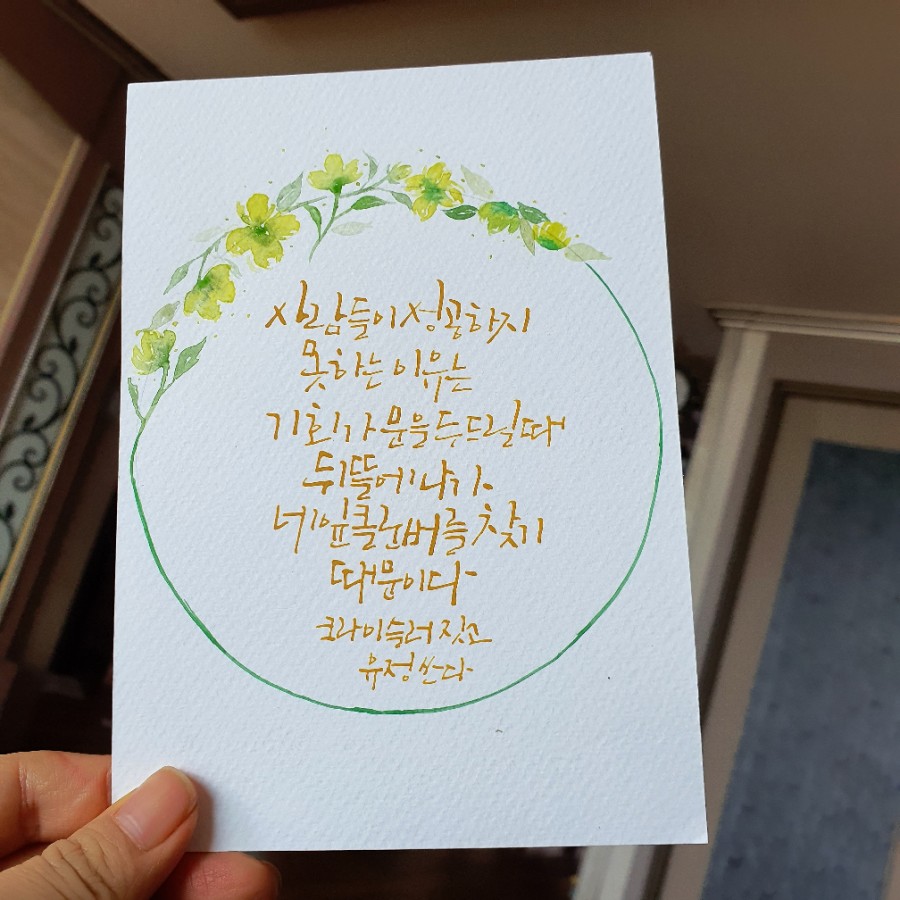 사람들이 성공하지
못하는 이유는
기회가 문을 두드릴때
뒤뜰에 나가
네잎클로버를 찾기
때문이다
크라이슬러 짓고
유정 쓰다